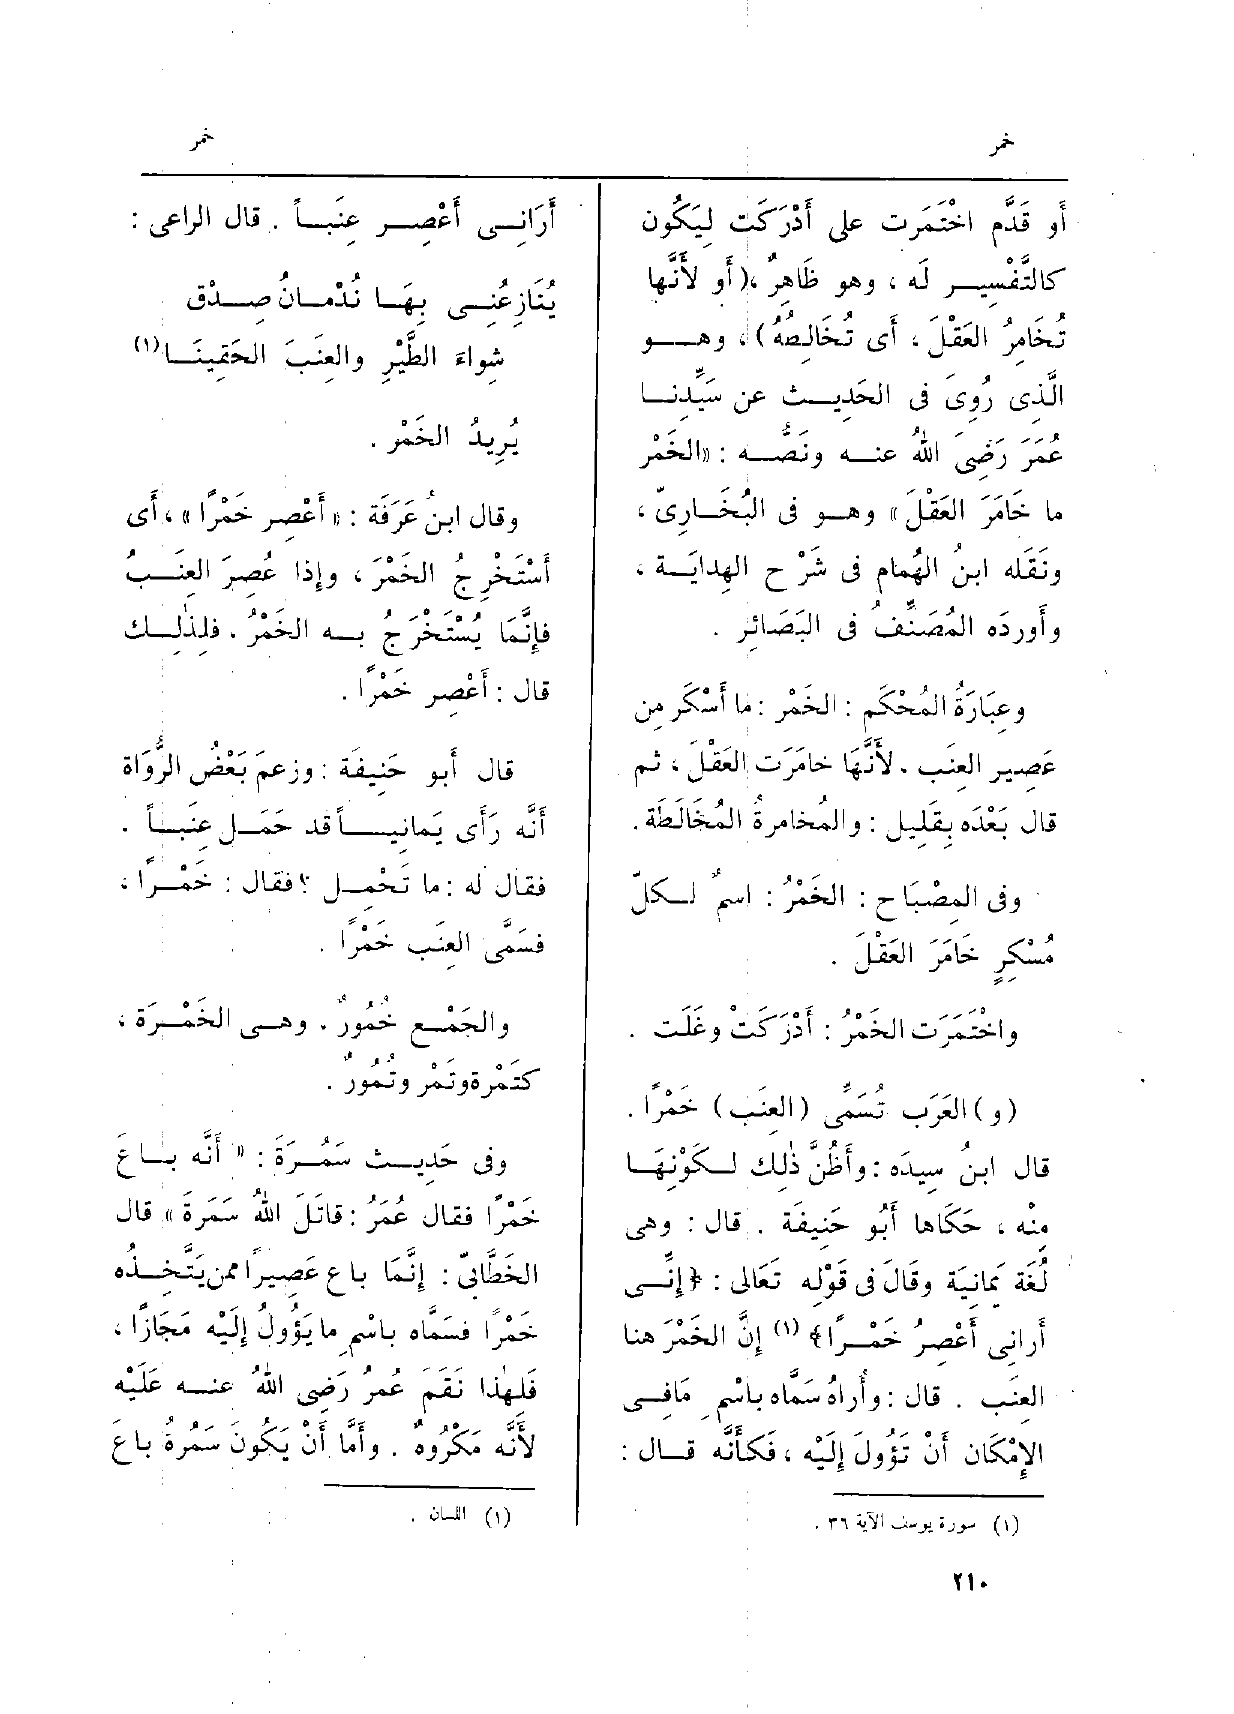 خمر
خمر
أو قَدَّم اخْتَمَرت على أَدْرَكَت لِيَكُون
كالتَّفْسِيــر لَه ، وهو ظَاهِرٌ ،(أو لأَنَّها
تُخَامِرُ العَقْلَ ، أى تُخَالِطُهُ) ، وهــو
الَّذِى رُوِىَ فى الحَدِيث عن سَيِّدنــا
عُمَرَ رَضِىَ اللهُ عنــه ونَصُّــه : «الخَمْر
ما خَامَرَ العَقْلَ» وهــو فى البُخَــارِىّ ،
ونَقَله ابنُ الهُمام فى شَرْح الهِدايَــة ،
وأَورَدَه المُصَنِّفُ فى البَصَائِر .
وعِبَارَةُ المُحْكَم : الخَمْر : ما أَسْكَر مِن
عَصِير العِنَب . لأَنَّهَا خامَرَت العَقْلَ ، ثم
قال بَعْدَه بِقَلِيل : والمُخامرةُ المُخَالَطَة .
وفى المِصْبَاح : الخَمْرُ : اسمٌ لــكلّ
مُسْكِرٍ خَامَرَ العَقْلَ .
واخْتَمَرَت الخَمْرُ : أَدْرَكَتْ وغَلَت .
(و) العَرَب تُسَمِّى (العِنَب) خَمْرًا .
قال ابنُ سِيدَه : وأَظُنّ ذٰلِك لــكَوْنِهَــا
منْه ، حَكَاها أَبُو حَنِيفَة . قال : وهى
لُغَة يَمانِيَة وقَالَ فى قَوْلِه تَعَالى : ﴿إِنِّــى
أَرانِى أَعْصِرُ خَمْــرًا﴾ (١) إِنَّ الخَمْرَ هنا
العِنَب . قال : وأُراهُ سَمَّاه باسْمِ مَافِــى
الإِمْكَان أَنْ تَؤُولَ إِلَيْه ، فكأَنَّه قــال :
(١) سورة يوسف الآية ٣٦ .
أَرَانِــى أَعْصِــر عِنَبــاً . قال الراعى :
يُنَازِعُنِــى بِهَــا نُدْمَــانُ صِــدْقٍ
شِواءَ الطَّيْرِ والعِنَبَ الحَقِينَــا(١)
يُرِيدُ الخَمْر .
وقال ابنُ عَرَفَة : «أَعْصِر خَمْرًا» ، أى
أَسْتَخْرِجُ الخَمْرَ ، وإذا عُصِرَ العِنَــبُ
فإِنَّمَا يُسْتَخْرَجُ بــه الخَمْرُ . فلِذٰلِــك
قال : أَعْصِر خَمْرًا .
قال أَبو حَنِيفَة : وزعمَ بَعْضُ الرُّوَاة
أَنَّه رَأَى يَمَانِيــاً قد حَمَــل عِنَبــاً .
فقال له : ما تَحْمِــل ؟ فقال : خَمْــرًا ،
فسَمَّى العِنَب خَمْرًا .
والجَمْــع خُمُورٌ . وهــى الخَمْــرَة ،
كتَمْرة وتَمْر وتُمُورٌ .
وفى حَدِيــث سَمُــرَةَ : « أَنَّه بــاعَ
خَمْرًا فقال عُمَرُ : قاتَلَ اللهُ سَمُرَة » قال
الخَطَّابِىّ : إِنَّمَا باع عَصِيرًا ممن يَتَّخِــذُه
خَمْرًا فسَمَّاه باسْمِ ما يَؤُولُ إِلَيْه مَجَازًا ،
فَلِهٰذا نَقَمَ عُمَرُ رَضِىَ اللهُ عنــه عَلَيْه
لأَنَّه مَكْرُوهٌ . وأَمَّا أَنْ يَكُونَ سَمُرةُ باعَ
(١) اللسان .
٢١٠